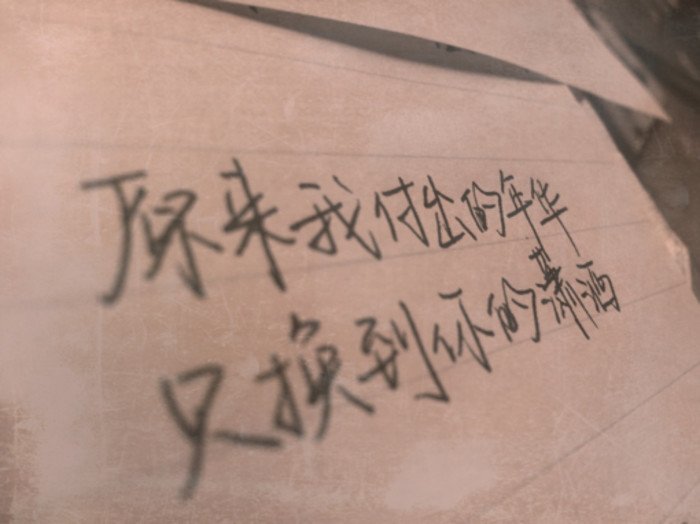 原来我付出的年华
只换到你的潇洒